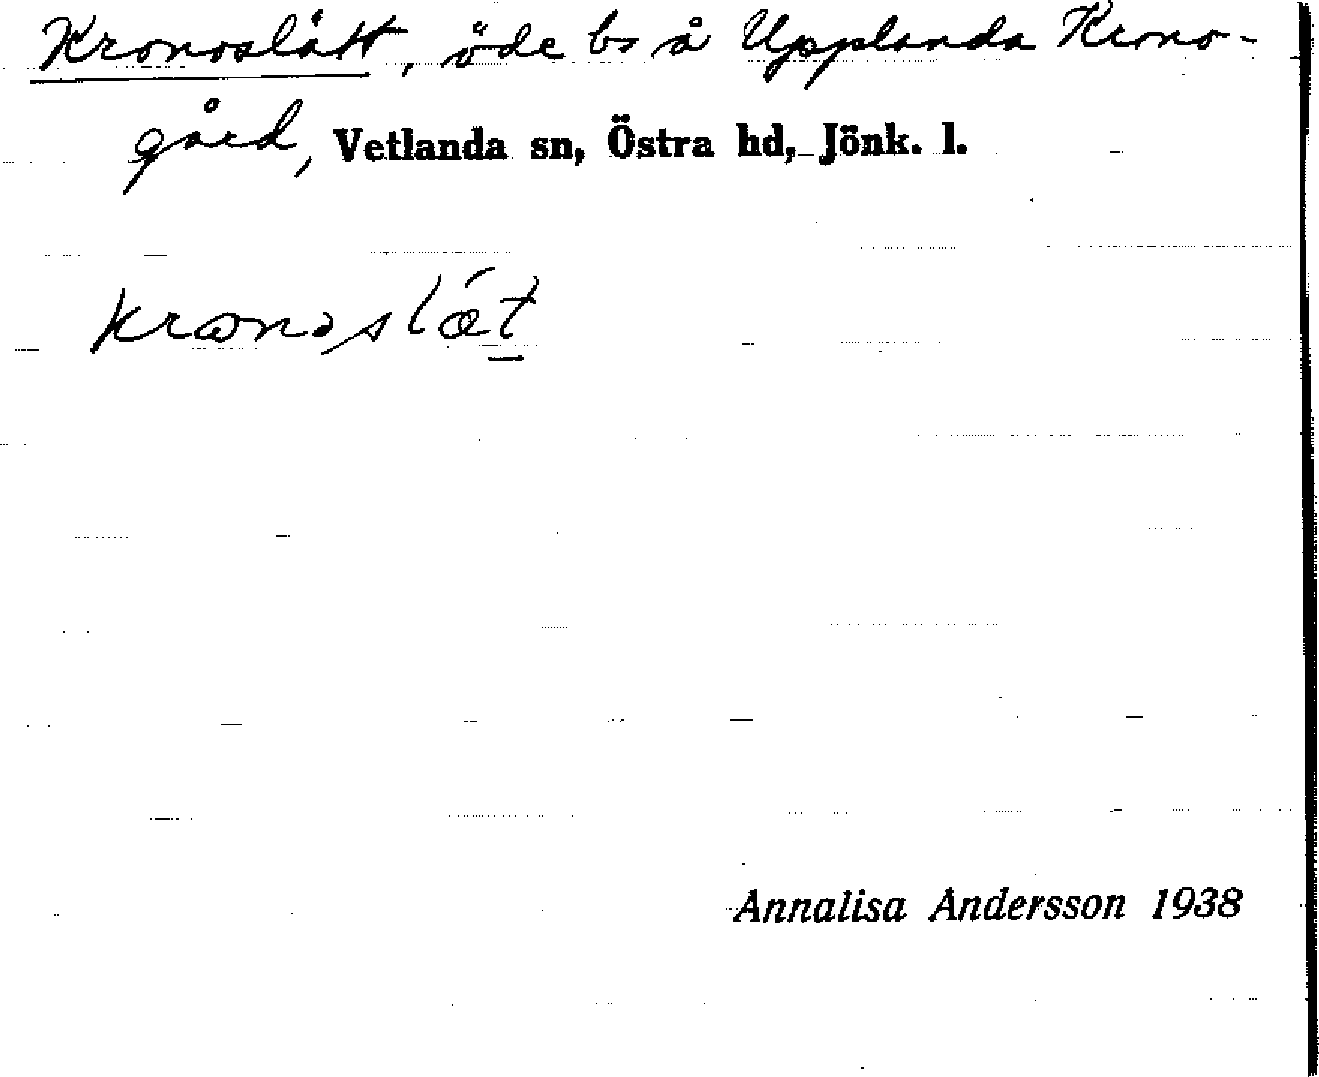 Kronoslått, öde bs å Upplanda Krono-
gård, Vetlanda sn, Östra hd, Jönk. l.
Annalisa Andersson 1938